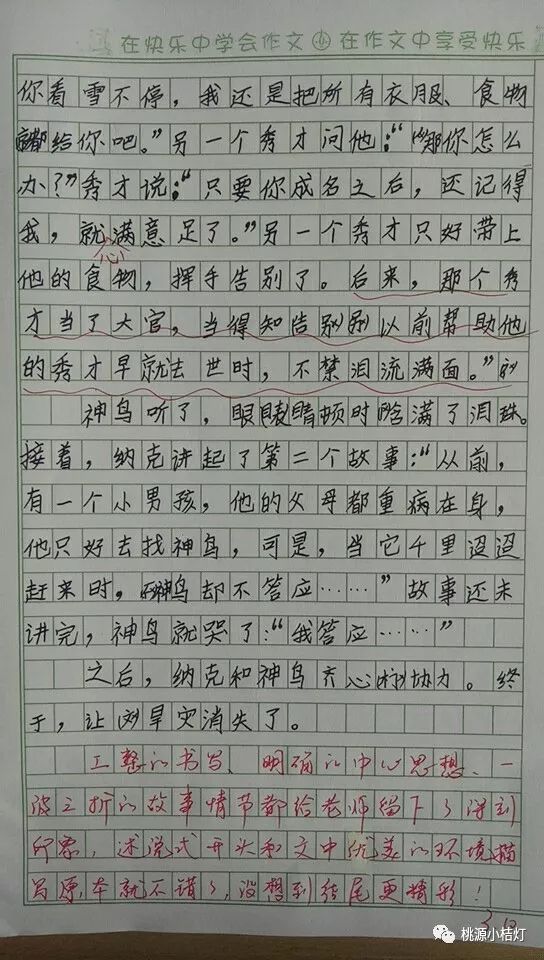 在快乐中学会作文 小 在作文中享受快乐
你看雪不停，我还是把所有衣服、食物
都给你吧。”另一个秀才问他：“那你怎么
办？”秀才说：“只要你成名之后，还记得
我，就满意足了。”另一个秀才只好带上
心
他的食物，挥手告别了。后来，那个秀
才当了大官，当得知告别别以前帮助他
的秀才早就去世时，不禁泪流满面。”的
神鸟听了，眼睛顿时晗满了泪珠。
接着，纳克讲起了第二个故事：“从前，
有一个小男孩，他的父母都重病在身，
他只好去找神鸟，可是，当它千里迢迢
赶来时，神鸟却不答应……”故事还未
讲完，神鸟就哭了：“我答应……”
之后，纳克和神鸟齐心协力。终
于，让旱灾消失了。
工整的书写、明确的中心思想、一
波三折的故事情节都给老师留下了深刻
印象，述说式开头和文中优美的环境描
写原本就不错了，没想到结尾更精彩！
桃源小桔灯